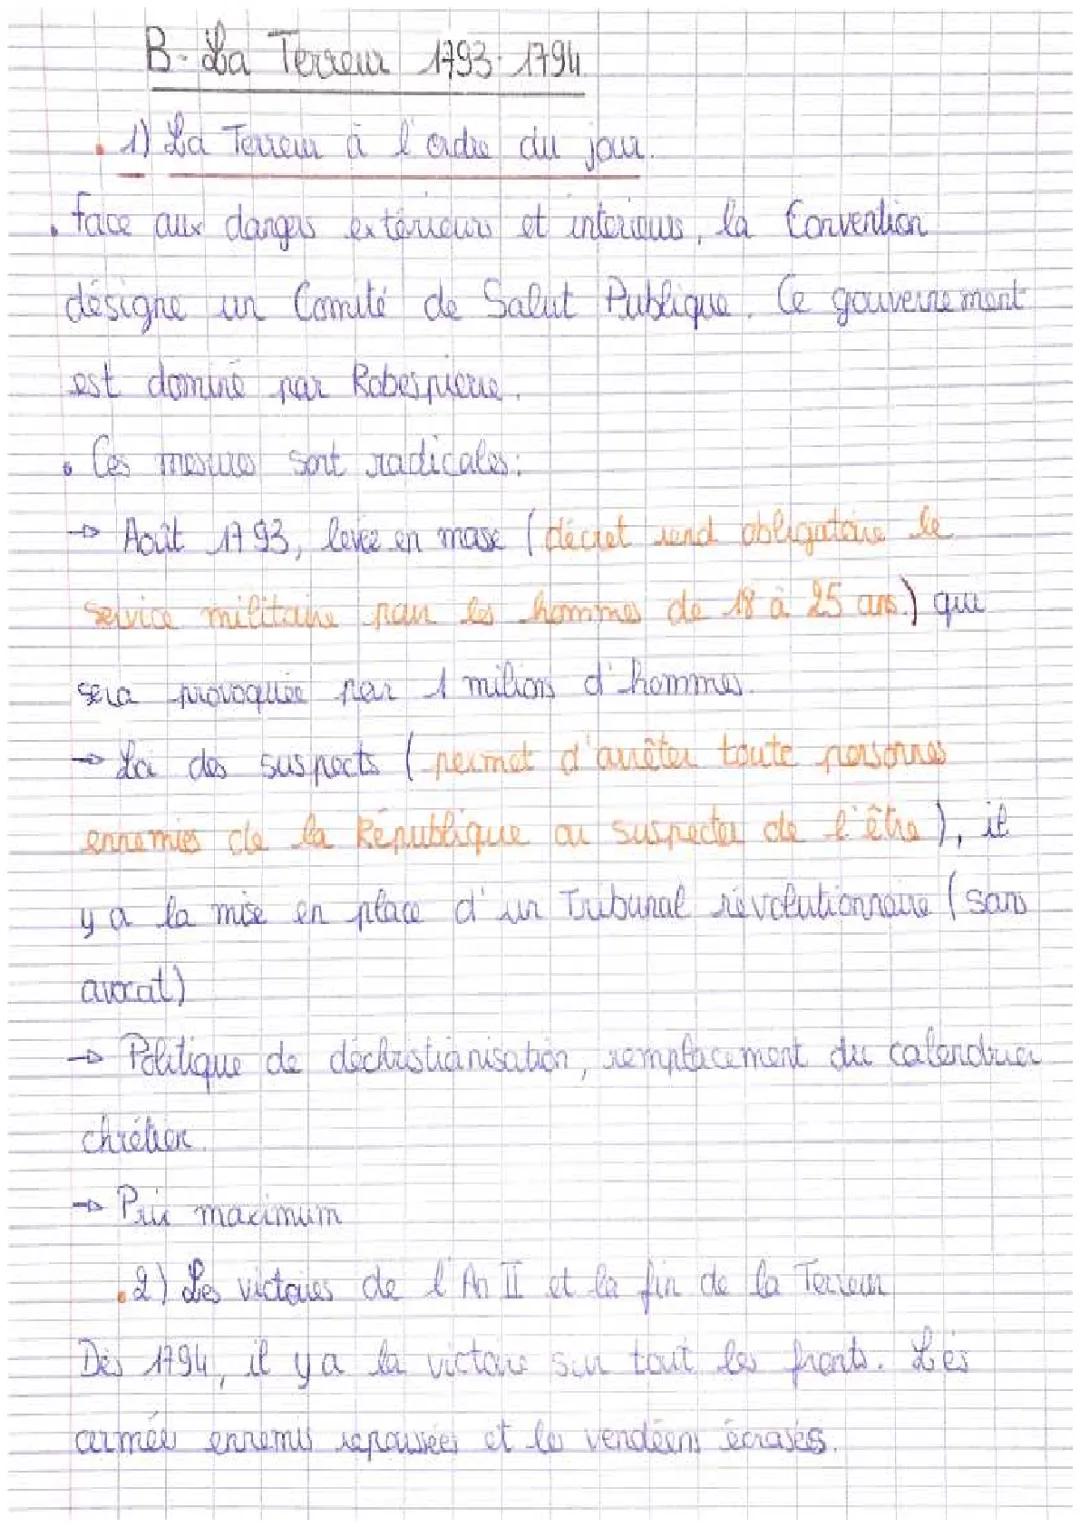 B- La Terreur 1793-1794
1) La Terreur à l'ordre du jour.
face aux dangers extérieurs et interieurs, la Convention
désigne un Comité de Salut Publique. Ce gouvernement
est dominé par Robespierre.
Ces mesures sont radicales:
→ Août 1793, levée en mase (décret rend obligatoire le
service militaire pour les hommes de 18 à 25 ans.) qui
sera provoquée par 1 milions d'hommes.
→ Loi des suspects (permet d'arrêter toute personnes
ennemies de la République ou suspecter de l'être), il
y a la mise en place d'un Tribunal révolutionnaire (sans
avocat)
→ Politique de déchristianisation, remplacement du calendrier
chrétien.
→ Prix maximum
2) Les victoires de l'An II et la fin de la Terreur
Dès 1794, il y a la victoire sur tout les fronts. Les
armée ennemis repoussées et les vendéens écrasés.